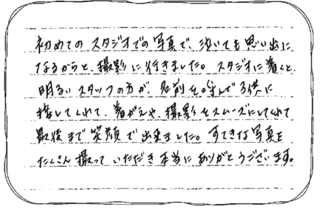 初めてのスタジオでの写真で、泣いても思い出に
なるからと、撮影に行きました。スタジオに着くと、
明るいスタッフの方が、名前を呼んで子供に
接してくれて、着がえや、撮影をスムーズにしてくれて
最後まで笑顔で出来ました。すてきな写真を
たくさん撮っていただき本当にありがとうございます。